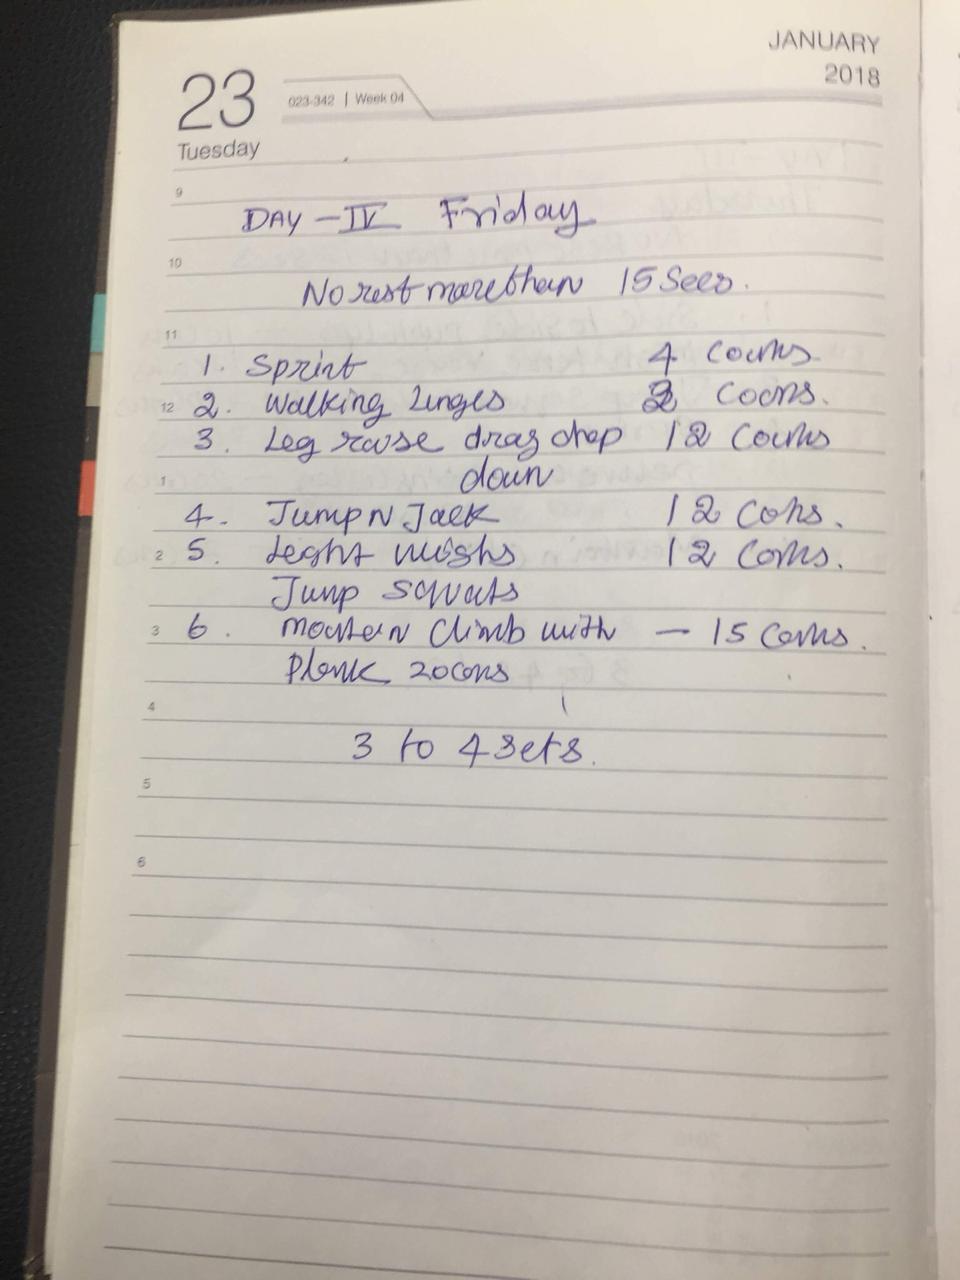 JANUARY
2018
23
023-342 | Week 04
Tuesday
9
DAY - IV Friday
10
No rest more than 15 Secs.
11
1. Sprint 4 Counts
12 2. Walking Lunges 2 Counts.
3. Leg raise drag drop 12 Counts
1 down
4. Jump N Jack 12 Cons.
2 5. Leght weighs 12 Cons.
Jump Squats
3 6. Mountain Climb with — 15 Cons.
Plank 20 cons
4
3 to 4 sets.
5
6